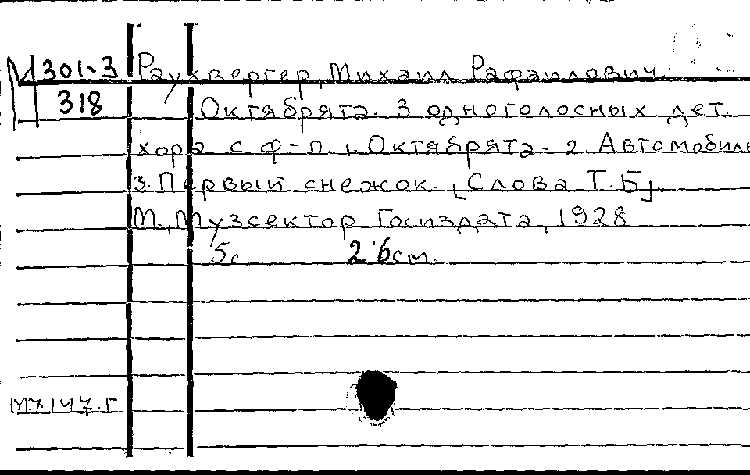 М 301-3 Раухвергер, Михаил Рафаилович.
318 Октябрята. 3 одноголосных дет.
хора с ф-п. 1. Октябрята. 2 Автомобиль
3. Первый снежок. [Слова Т. Б].
М., Музсектор Госиздата, 1928
5с 26 см.